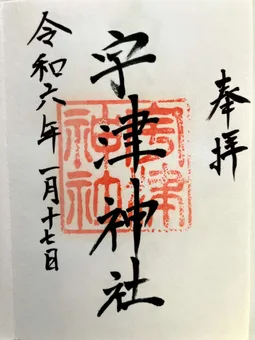 奉拝
宇津神社
宇津神社
令和六年 一月十七日